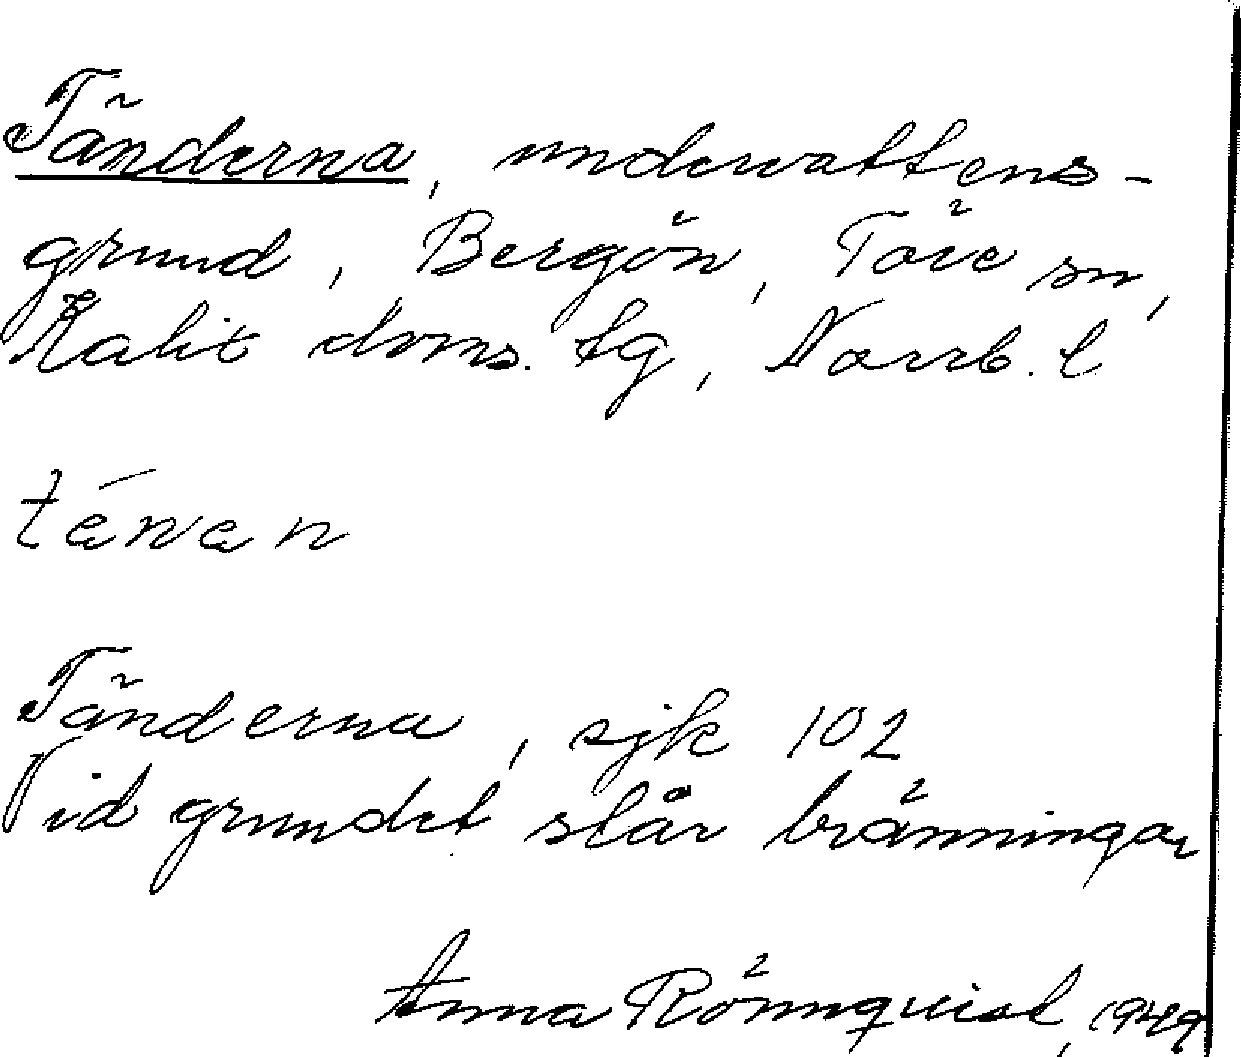 Tänderna, undervattens-
grund, Bergön, Töre sn,
Kalix doms. tg, Norrb. l
tä́nan
Tänderna, sjk 102
Vid grundet slår bränningar
Anna Rönnquist, 1949